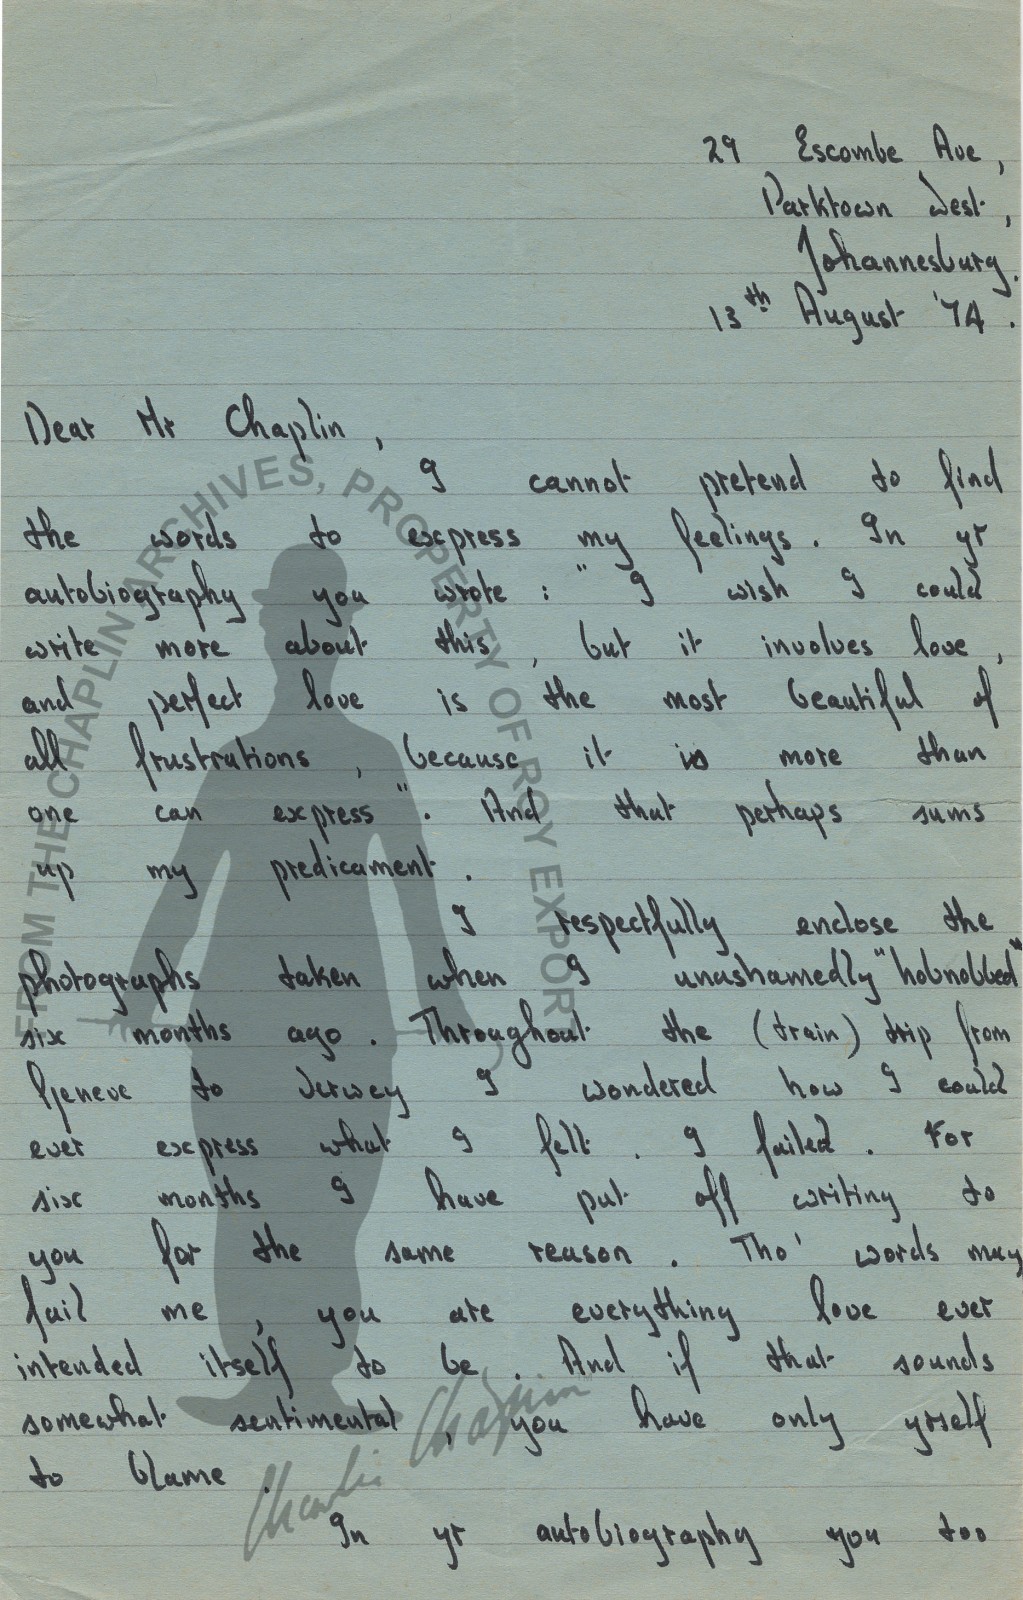 29 Escombe Ave,
Parktown West,
Johannesburg.
13th August '74.
Dear Mr Chaplin,
I cannot pretend to find
the words to express my feelings. In yr
autobiography you wrote: "I wish I could
write more about this, but it involves love,
and perfect love is the most beautiful of
all frustrations, because it is more than
one can express". And that perhaps sums
up my predicament.
I respectfully enclose the
photographs taken when I unashamedly "hobnobbed"
six months ago. Throughout the (train) trip from
Geneve to Vervey I wondered how I could
ever express what I felt. I failed. For
six months I have put off writing to
you for the same reason. Tho' words may
fail me, you are everything love ever
intended itself to be. And if that sounds
somewhat sentimental, you have only yrself
to blame.
In yr autobiography you too
FROM THE CHAPLIN ARCHIVES, PROPERTY OF ROY EXPORT
Charlie Chaplin